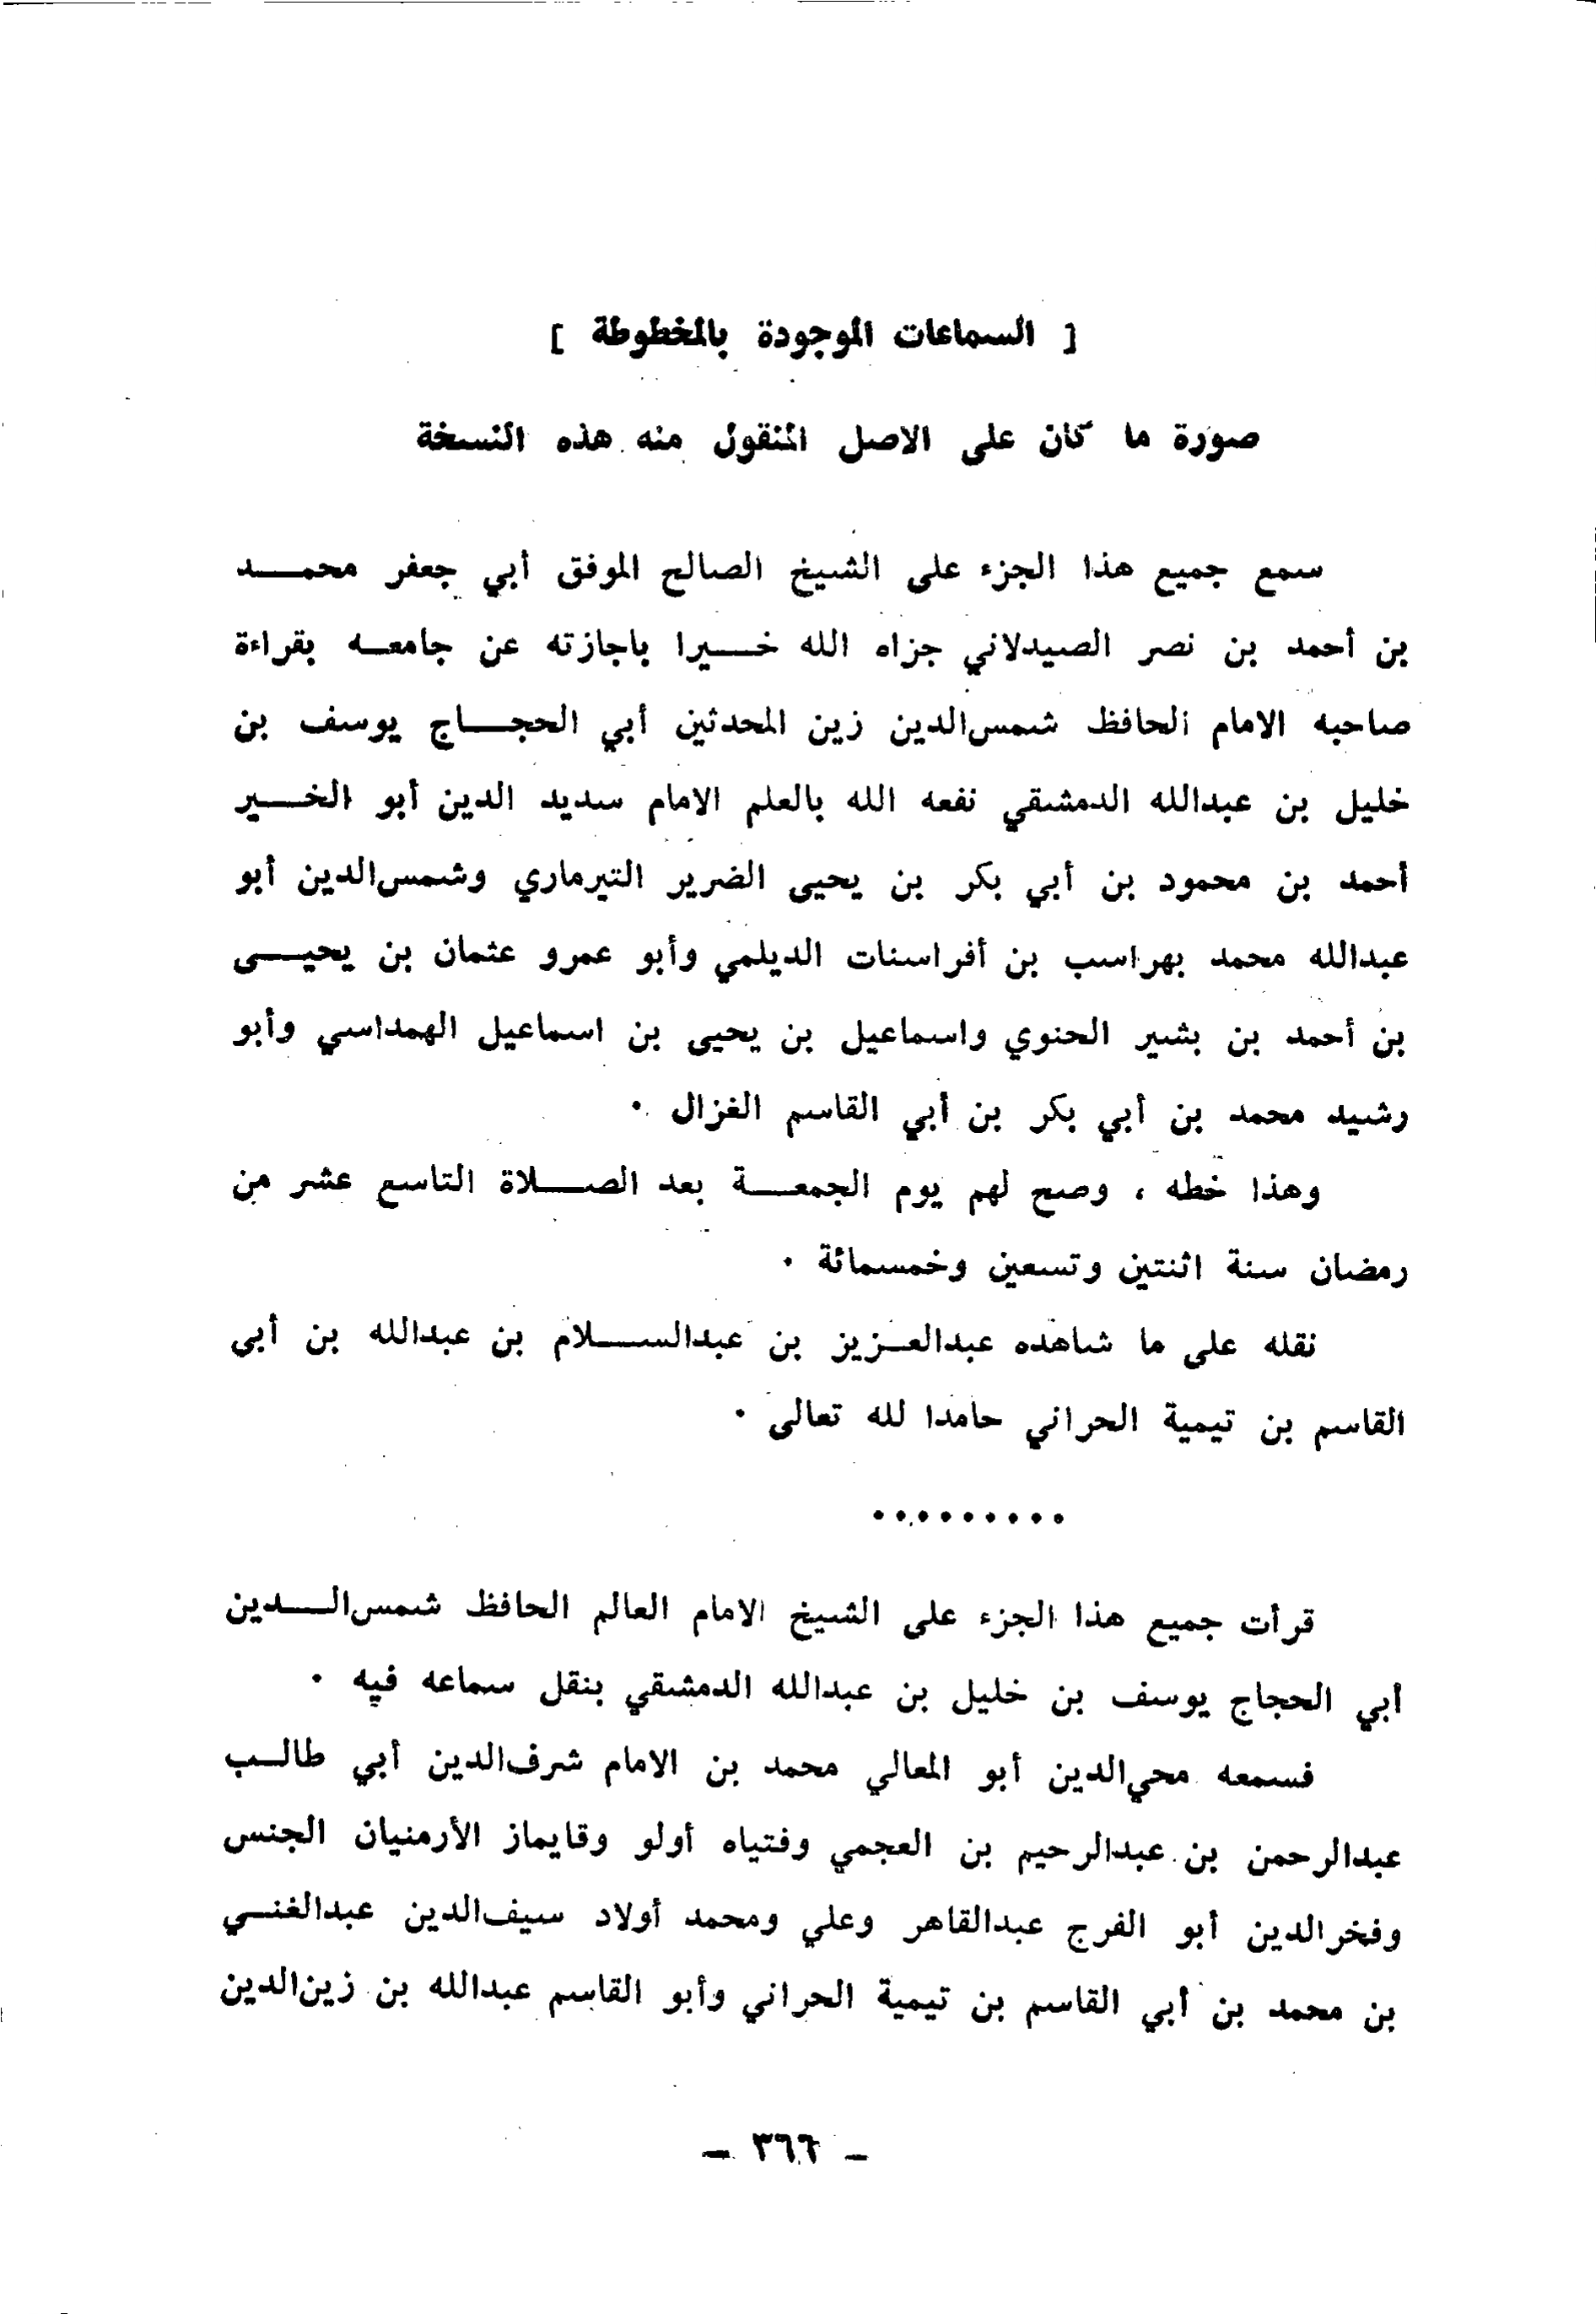 [ السماعات الموجودة بالمخطوطة ]
صورة ما كان على الاصل المنقول منه هذه النسخة
سمع جميع هذا الجزء على الشيخ الصالح الموفق أبي جعفر محمد
بن أحمد بن نصر الصيدلاني جزاه الله خيرا باجازته عن جامعه بقراءة
صاحبه الامام الحافظ شمس‌الدين زين المحدثين أبي الحجاج يوسف بن
خليل بن عبدالله الدمشقي نفعه الله بالعلم الامام سديد الدين أبو الخير
أحمد بن محمود بن أبي بكر بن يحيى الضرير التيرماري وشمس‌الدين أبو
عبدالله محمد بهراسب بن أفراسنات الديلمي وأبو عمرو عثمان بن يحيى
بن أحمد بن بشير الحنوي واسماعيل بن يحيى بن اسماعيل الهمداسي وأبو
رشيد محمد بن أبي بكر بن أبي القاسم الغزال ٠
وهذا خطه ، وصح لهم يوم الجمعة بعد الصلاة التاسع عشر من
رمضان سنة اثنتين وتسعين وخمسمائة ٠
نقله على ما شاهده عبدالعزيز بن عبدالسلام بن عبدالله بن أبي
القاسم بن تيمية الحراني حامدا لله تعالى ٠
٠٠٠٠٠٠٠٠٠
قرأت جميع هذا الجزء على الشيخ الامام العالم الحافظ شمس‌الدين
أبي الحجاج يوسف بن خليل بن عبدالله الدمشقي بنقل سماعه فيه ٠
فسمعه محي‌الدين أبو المعالي محمد بن الامام شرف‌الدين أبي طالب
عبدالرحمن بن عبدالرحيم بن العجمي وفتياه أولو وقايماز الأرمنيان الجنس
وفخرالدين أبو الفرج عبدالقاهر وعلي ومحمد أولاد سيف‌الدين عبدالغني
بن محمد بن أبي القاسم بن تيمية الحراني وأبو القاسم عبدالله بن زين‌الدين
– ٣٦٦ –